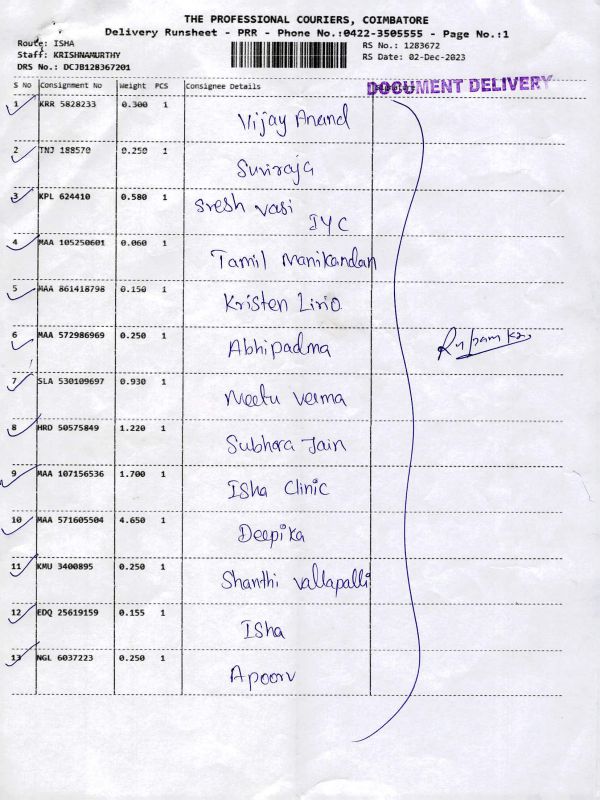 THE PROFESSIONAL COURIERS, COIMBATORE
Delivery Runsheet - PRR - Phone No.:0422-3505555 - Page No.:1
Route: ISHA
RS No.: 1283672
Staff: KRISHNAMURTHY
RS Date: 02-Dec-2023
DRS No.: DCJB128367201
S No Consignment No Weight PCS Consignee Details
DOCUMENT DELIVERY
1 KRR 5828233 0.300 1 Vijay Anand
2 TNJ 188570 0.250 1 Suviraja
3 KPL 624410 0.580 1 Sresh vasi
IYC
4 MAA 105250601 0.060 1 Tamil Manikandan
5 MAA 861418798 0.150 1 Kristen Lirio
6 MAA 572986969 0.250 1 Abhipadma
7 SLA 530109697 0.930 1 Neetu Verma
8 HRD 50575849 1.220 1 Subhra Jain
9 MAA 107156536 1.700 1 Isha Clinic
10 MAA 571605504 4.650 1 Deepika
11 KMU 3400895 0.250 1 Shanthi Vallapalli
12 EDQ 25619159 0.155 1 Isha
13 NGL 6037223 0.250 1 Apoorv